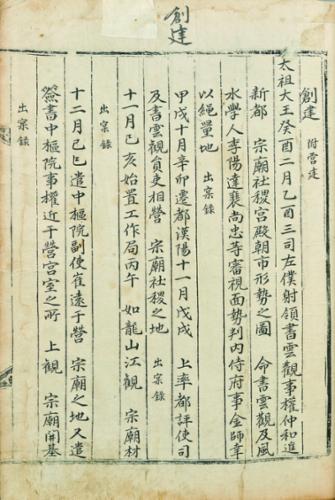 創建
創建 附營建
太祖大王癸酉二月乙酉三司左僕射領書雲觀事權仲和進
新都 宗廟社稷宮殿朝市形勢之圖 命書雲觀及風
水學人李陽達裵尙忠等審視面勢判內侍府事金師幸
以繩量地 出宲錄
甲戌十月辛卯遷都漢陽十一月戊戌 上率都評使司
及書雲觀員吏相營 宗廟社稷之地 出宲錄
十一月己亥始置工作局丙午 如龍山江觀 宗廟材
出宲錄
十二月己巳遣中樞院副使崔遠于營 宗廟之地又遣
簽書中樞院事權近于營宮室之所 上觀 宗廟開基
出宲錄